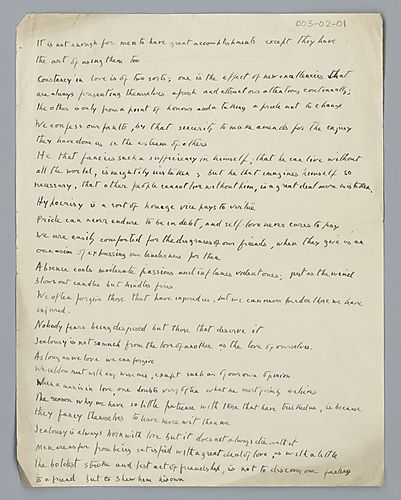 003-02-01
It is not enough for men to have great accomplishments except they have
the art of using them too
Constancy in love is of two sorts; one is the effect of new excellencies that
are always presenting themselves afresh and attract our attentions continually;
the other is only from a point of honour and a taking a pride not to change
We confess our faults, by that sincerity to make amends for the injury
they have done us in the esteem of others
He that fancies such a sufficiency in himself, that he can love without
all the world, is mightily mistaken; but he that imagines himself so
necessary, that other people cannot love without him, is a great deal more mistaken.
Hypocrisy is a sort of homage vice pays to virtue
Pride can never endure to be in debt, and self love never cares to pay
We are easily comforted for the disgraces of our friends, when they give us an
occasion of expressing our tenderness for them
Absence cools moderate passions and inflames violent ones; just as the wind
blows out candles but kindles fires.
We often forgive those that have injured us, but we can never pardon those we have
injured.
Nobody fears being despised but those that deserve it
Jealousy is not so much from the love of another as the love of ourselves.
As long as we love we can forgive
We seldom meet with any wise men, except such as of our own opinion
When a man is in love, one doubts very often what he most firmly believes
The reason why we have so little patience with those that have is because
they fancy themselves to have more wit than we
Jealousy is always born with love but it does not always die with it
Men are as far from being satisfied with a great deal of love, as with a little
The boldest stroke and best act of friendship, is not to discover our
to a friend but to shew him his own